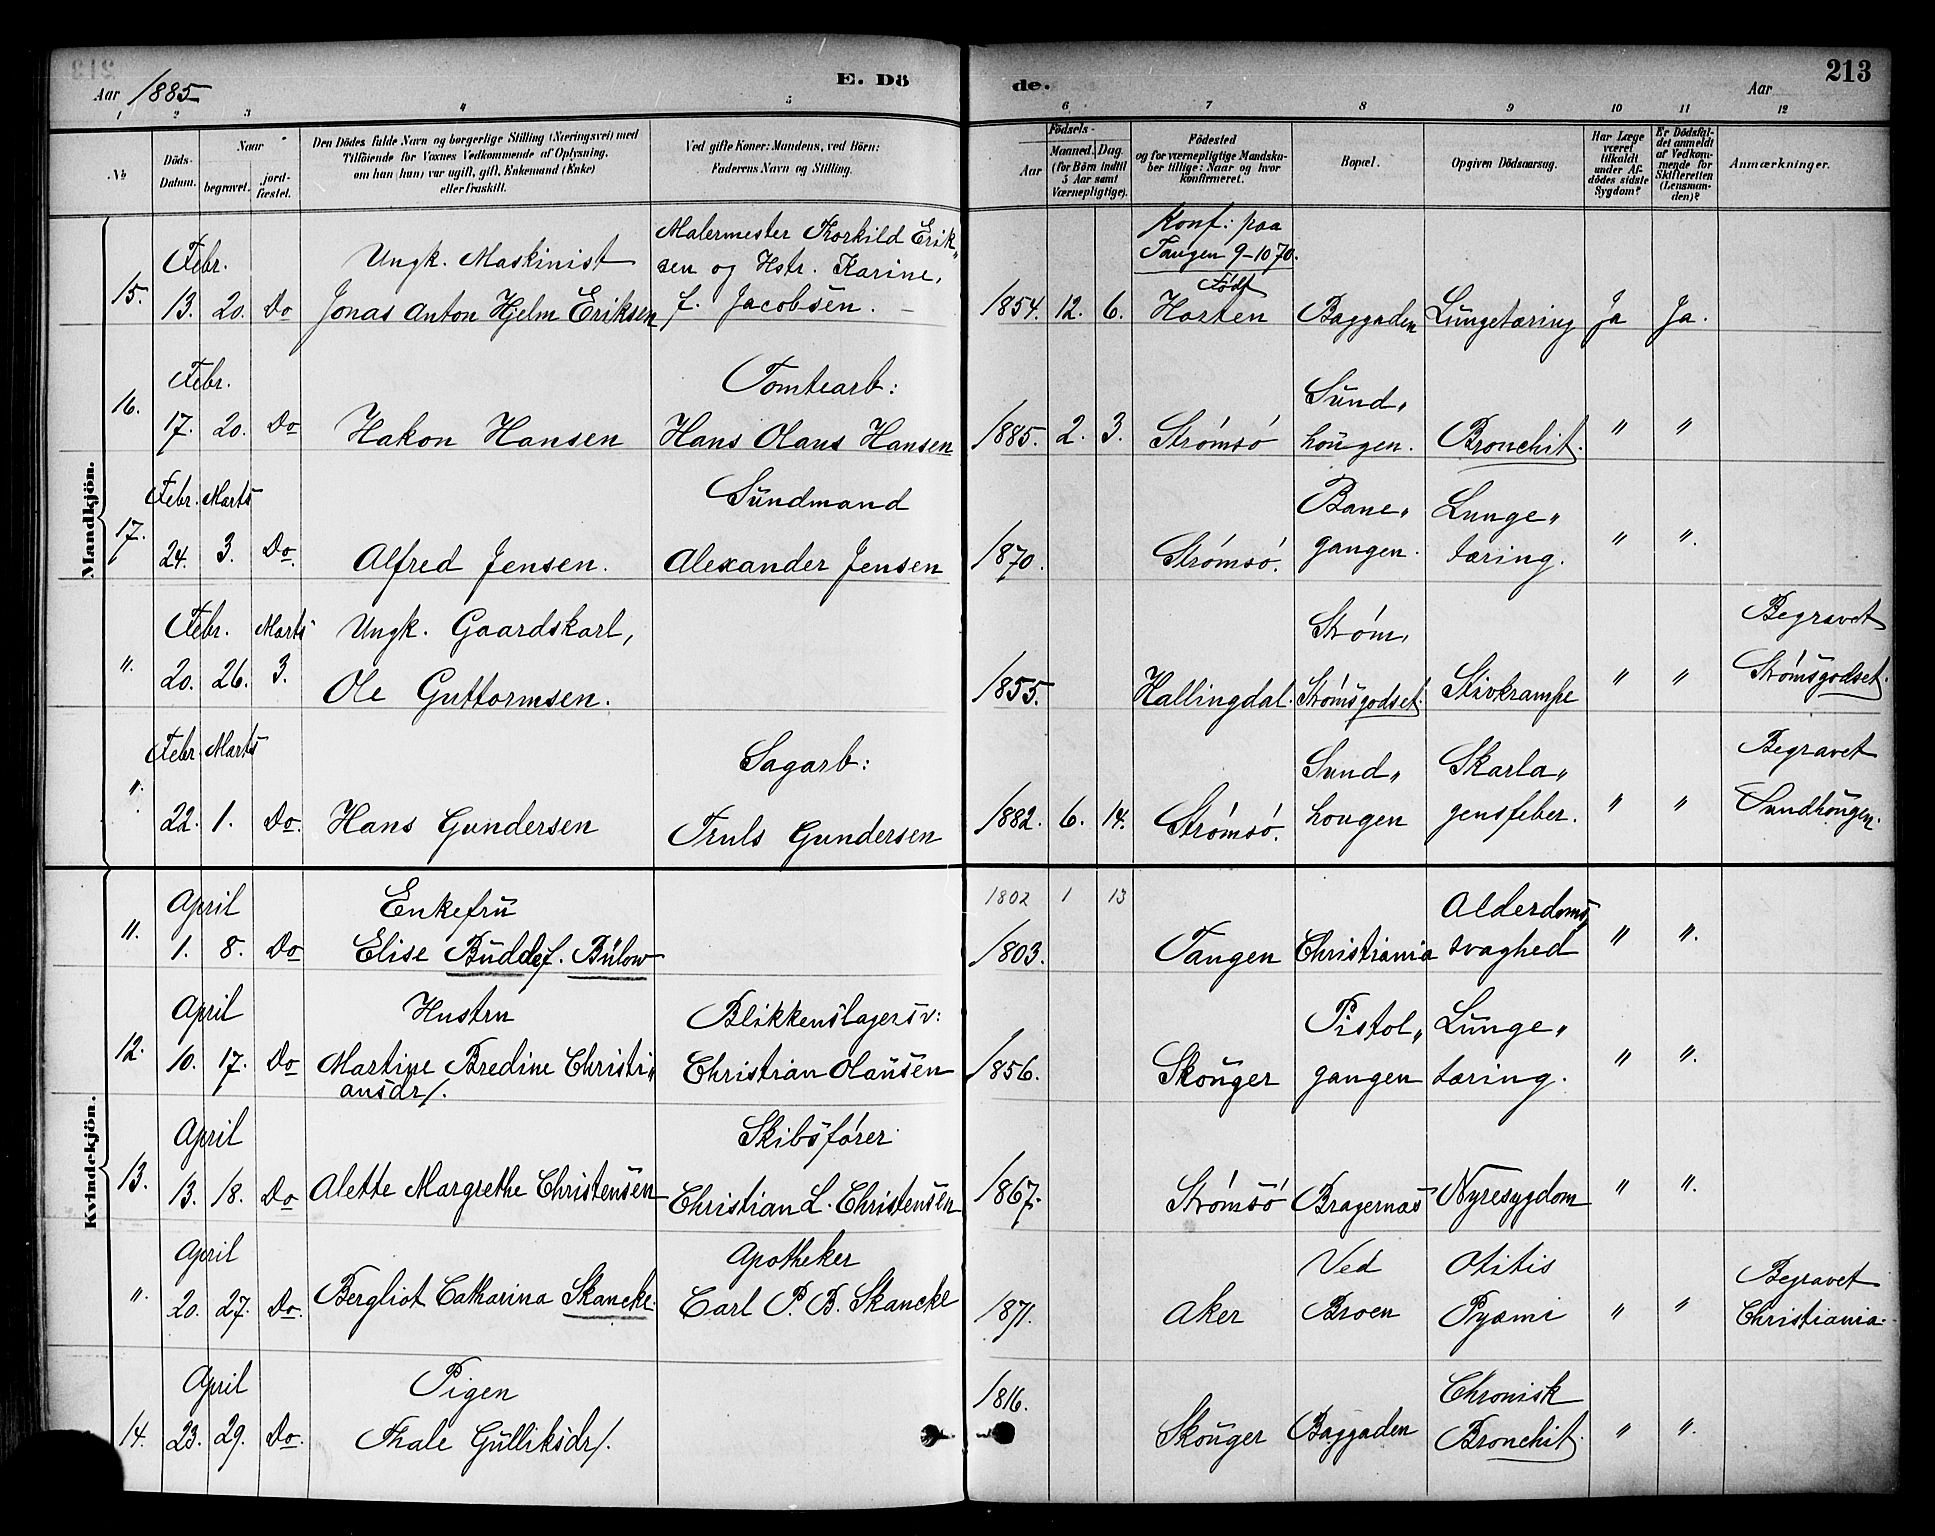 213
Aar 1885
E. Dö
de.
Aar
1 2 3 4 5 6 7 8 9 10 11 12
№
Döds-Datum.
Naar begravet.
jordfæstet.
Den Dödes fulde Navn og borgerlige Stilling (Næringsvei) med
Tilföiende for Voxnes Vedkommende af Oplysning,
om han (hun) var ugift, gift, Enkemand (Enke)
eller fraskilt.
Ved gifte Koner: Mandens, ved Börn:
Faderens Navn og Stilling.
Födsels-
Aar
Maaned. Dag
(for Börn indtil
5 Aar samt
Værnepligtige).
Födested
og for værnepligtige Mandska-
ber tillige: Naar og hvor
konfirmeret.
Bopæl.
Opgiven Dödsaarsag.
Har Læge
været
tilkaldt
under Af-
dödes sidste
Sygdom?
Er Dödsfal-
det anmeldt
af Vedkom-
mende for
Skifteretten
(Lensman-
den)?
Anmærkninger.
Mandkjön.
15. Febr. 13. 20. Do
Ungk. Maskinist
Jonas Anton Hjelm Eriksen
Malermester Torkild Erik„
sen og Hstr. Karine,
f. Jacobsen. –
1854. 12. 6.
Konf: paa
Tangen 9-10 70.
Født
Horten
Baggaden
Lungetæring
Ja
Ja.
16. Febr. 17. 20. Do
Hakon Hansen
Tomtearb:
Hans Olaus Hansen
1885. 2. 3.
Strømsø
Sund„
hougen.
Bronchit.
" "
17. Febr. Marts 24. 3. Do.
Alfred Jensen.
Sundmand
Alexander Jensen
1870.
Strømsø.
Bane„
gangen.
Lunge„
tæring.
" ".
". Febr. Marts 20. 26. 3.
Ungk. Gaardskarl,
Ole Guttormsen.
1855.
Hallingdal.
Strøm,
Strømsgodset.
Stivkrampe
" "
Begravet
Strømsgodset.
". Febr. Marts 22. 1. Do.
Hans Gundersen
Sagarb:
Truls Gundersen
1882. 6. 14.
Strømsø.
Sund„
hougen
Skarla„
gensfeber.
" "
Begravet
Sundhougen.
Kvindekjön.
". April 1. 8. Do
Enkefru
Elise Budde f. Bülow
1802 1 13
1803.
Tangen
Christiania
Alderdoms„
svaghed
" ".
12. April 10. 17. Do
Hustru
Martine Bredine Christi„
ansdr/.
Blikkenslagersv:
Christian Olausen
1856.
Skouger
Pistol„
gangen
Lunge„
tæring.
" ".
13. April 13. 18. Do
Alette Margrethe Christensen
Skibsfører
Christian L. Christensen
1867.
Strømsø
Bragernæs
Nyresygdom
" ".
". April 20. 27. Do.
Bergliot Catharina Skancke.
Apotheker
Carl P. B. Skancke
1871.
Aker
Ved
Broen
Otitis
Pyæmi
" "
Begravet
Christiania.
14. April 23. 29. Do.
Pigen
Thale Gulliksdr/.
1816.
Skouger
Baggaden
Chronisk
Bronchit.
" ".